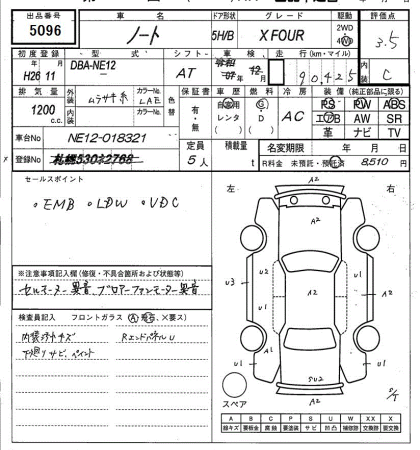 出品番号 車名 ドア形状 グレード 駆動 評価点
5096 ノート 5H/B X FOUR 2WD 4WD 3.5
初度登録 型式 シフト 車検 走行(km・マイル) 内装
H26 11 DBA-NE12 AT 90425 C
排気量 外装 ムラサキ系 カラーNo. LAE 色替 保証書 車歴 燃料 冷房 装備(純正部品に限る)
1200 c.c. 内装 カラーNo. 有・無 自家用 レンタ ( ) G D ( ) AC PS PW ABS
エアB AW SR
革 ナビ TV
車台No NE12-018321 定員 積載量 名変期限 年 月 日
登録No 札幌530ひ2768 5人 t R料金 未預託・預託済 8,510 円
セールスポイント
・EMB ・LDW ・VDC
※注意事項記入欄(修復・不具合箇所および状態等)
セルモーター異音、ブロアーファンモーター異音
検査員記入 フロントガラス(A, 飛石, ×要ス)
内装ヨゴレキズ RエンドパネルU
下廻りサビ、ペイント
左 右
A2
A2
U2 U1
U3 A2 A2
A1 A2
U1 U1
SU2
スペア
A B C P S U W XX X
線キズ 要板金 腐蝕 要塗装 サビ 凹凸 補修跡 交換跡 要交換